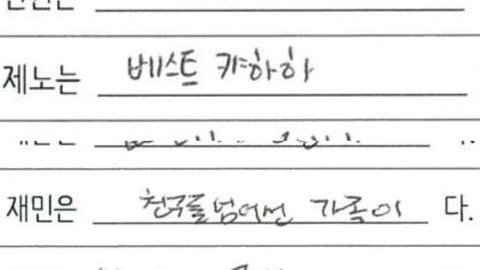 제노는 베스트 캬하하
재민은 친구를 넘어선 가족이 다.